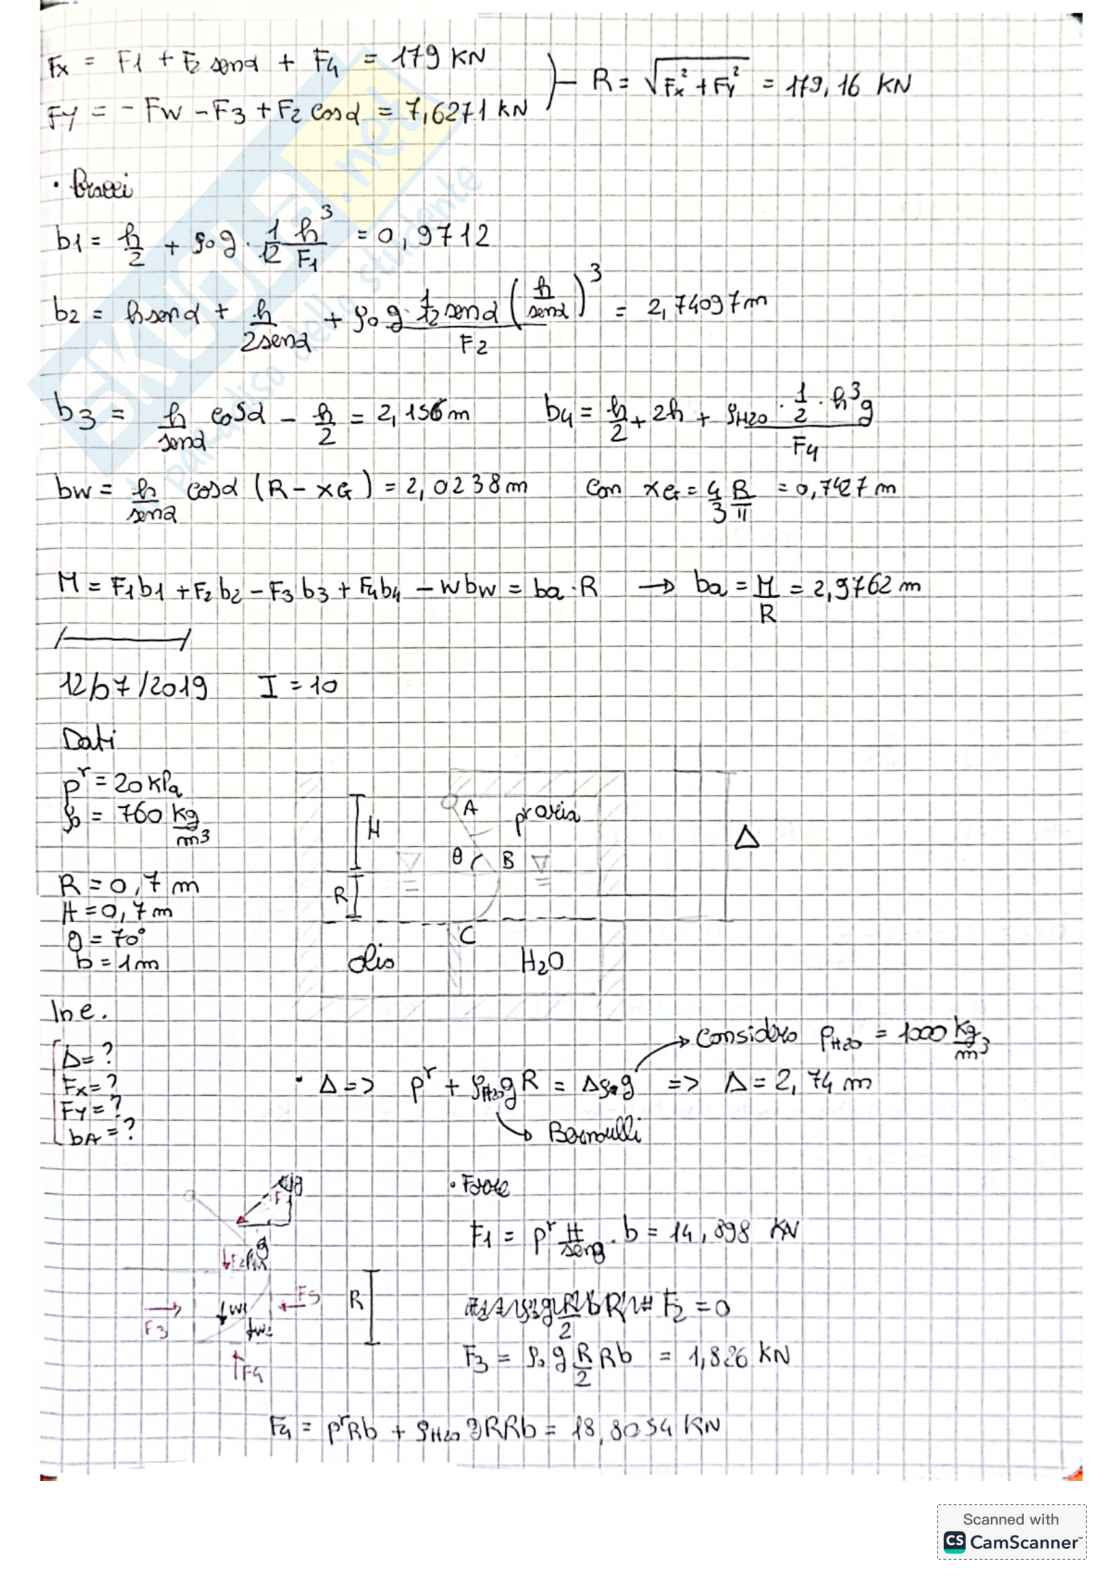 Fx = F1 + F2 senα + F4 = 179 KN
FY = - Fw - F3 + F2 cosα = 7,6271 kN
R = √(Fx² + Fy²) = 179,16 KN
• Bracci
b1 = h/2 + ρo g · 1/12 h³/F1 = 0,9712
b2 = h senα + h/2senα + ρo g · 1/12 senα (h/senα)³ / F2 = 2,74097 m
b3 = h/senα cosα - h/2 = 2,156 m
b4 = h/2 + 2h + ρH2O · 1/2 · h³g / F4
bw = h/senα cosα (R - xG) = 2,0238 m
con xG = 4/3 R/π = 0,7427 m
M = F1b1 + F2b2 - F3b3 + F4b4 - Wbw = ba · R → ba = M/R = 2,9762 m
12/07/2019 I = 10
Dati
pr = 20 kPa
ρo = 760 kg/m3
R = 0,7 m
H = 0,7 m
θ = 70°
b = 1m
H
A
pr aria
Δ
θ
B
R
C
olio
H2O
Inc.
Δ = ?
Fx = ?
FY = ?
bA = ?
• Δ => pr + ρH2O g R = Δρg => Δ = 2,74 m
Considero ρH2O = 1000 kg/m3
Bernoulli
F3
W1
W2
F5
F4
R
• Forze
F1 = pr H/senθ · b = 14,898 KN
F2 = 0
F3 = ρo g R/2 Rb = 1,826 KN
F4 = prRb + ρH2O gRRb = 18,8054 KN
SKUOLA.net
paradiso dello studente
Scanned with
CS CamScanner